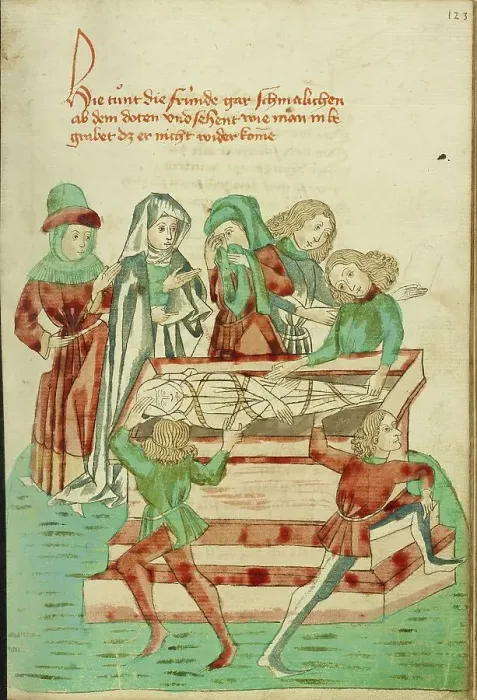 123
Hie tuͦnt die fründe gar schmalichen
ab dem doten vnd sehent wie man in be
grabet dz er nicht wider kome